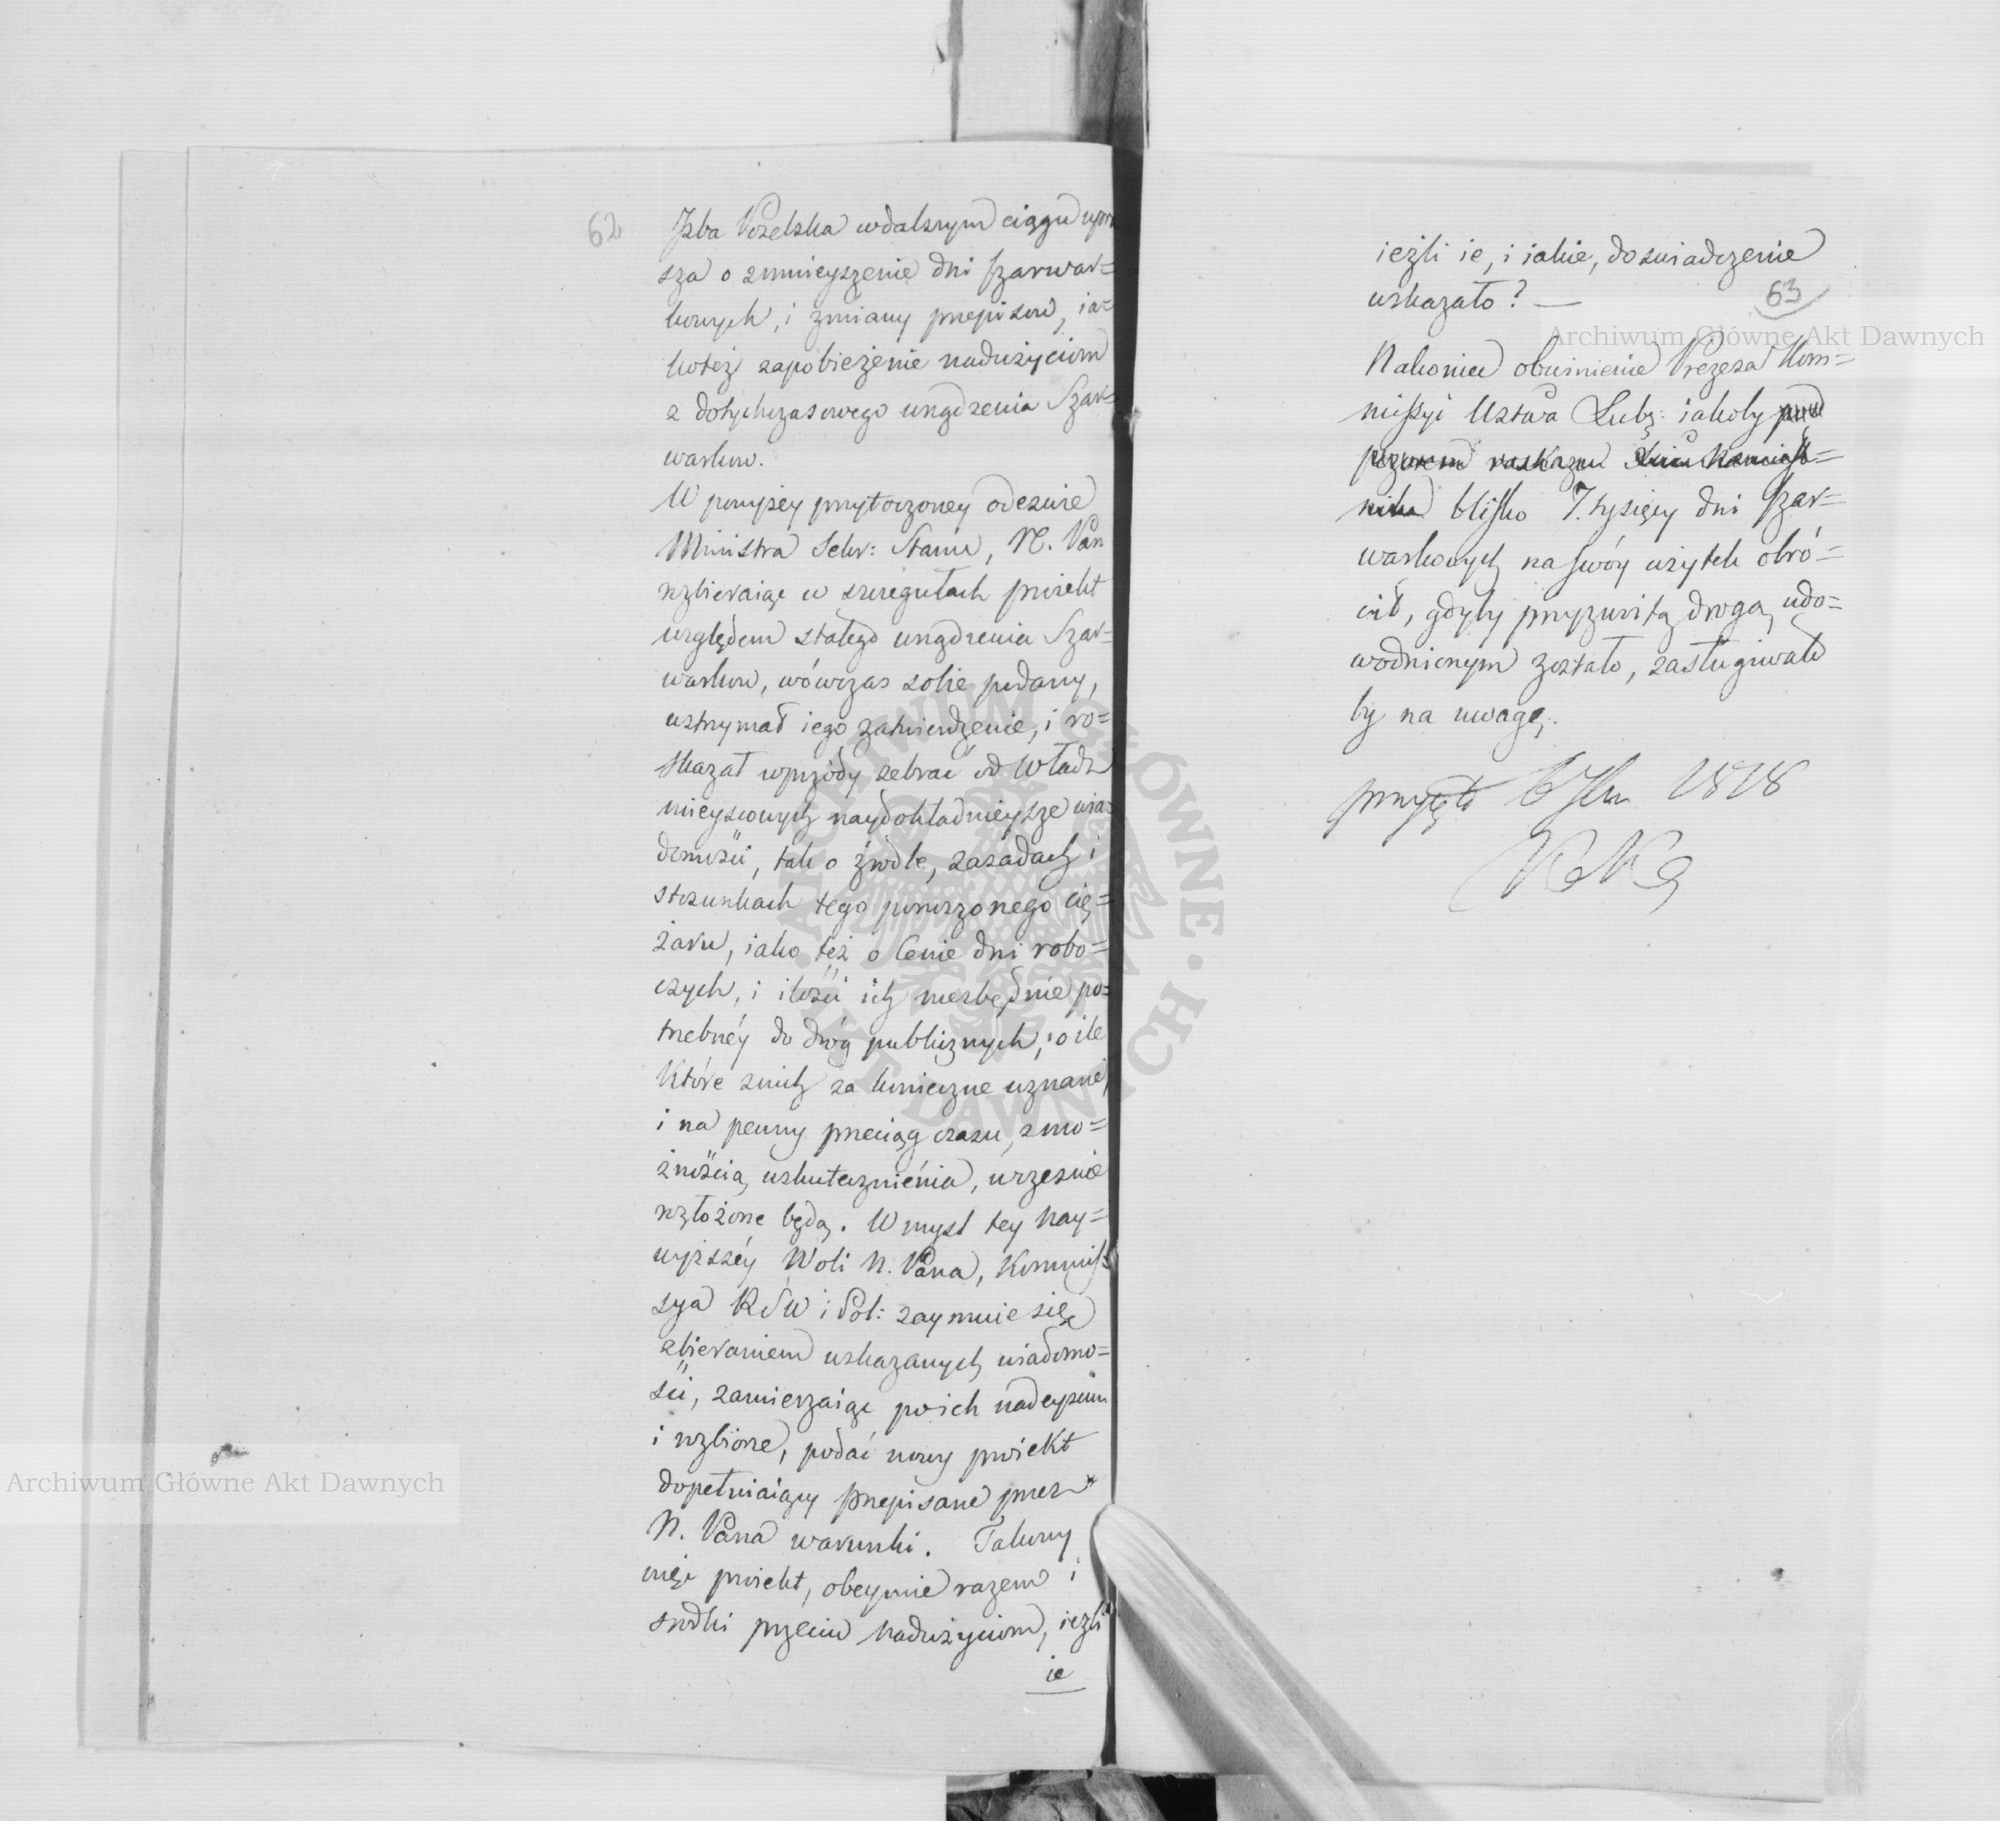 62
Izba Poselska wdalszym ciągu upra
sza o zmnieyszenie dni szarwar=
kowych, i zmiany przepisów, ia=
kotéż zapobieżenie nadużyciom
z dotychczasowego urządzenia Szar=
warków.
W powyżey przytoczoney odezwie
Ministra Sekr: Stanu, N. Pan
rozbieraiąc w szczegułach proiekt
względem stałego urządzenia Szar=
warków, wówczas sobie podany,
wstrzymał iego zatwierdzenie, i ro=
skazał wprzódy zebrać od Władz
mieyscowych naydokładnieysze wia=
domości, tak o źrodle, zasadach i
stosunkach tego powszonego cię=
żaru, iako téż o Cenie dni robo=
czych, i ilości ich niezbędnie po=
trzebnéy do dróg publicznych, o ile
które znich za konieczne uznane,
i na pewny przeciąg czasu, z mo=
żnością uskutecznienia, wcześnie
rozłożone będą. W myśl tey Nay=
wyższéy Woli N. Pana, Kommis=
sya RSW i Pol: zaymuie się
zbieraniem wskazanych wiadomo=
ści, zamierzaiąc po ich nadeyściu
i rozbiorze, podać nowy proiekt
dopełniaiący przepisane przez
N. Pana warunki. Takowy
więc proiekt, obeymie razem i
srodki przeciw nadużyciom, ieżli
ie
ieżli ie, i iakie, doswiadczenie
wskazało? —
63
Nakoniec obwinienie Prezesa Kom=
missyi Wztwa Lubs: iakoby pod
pozorem roskazu Xcia Namiest=
nika blisko 7. tysięcy dni szar=
warkowych na swóy użytek obró=
cił, gdyby przyzwoitą drogą udo=
wodnionym zostało, zasługiwało
by na uwagę.
przyięto 1818
Archiwum Główne Akt Dawnych
Archiwum Główne Akt Dawnych
ARCHIWUM GŁÓWNE AKT DAWNYCH